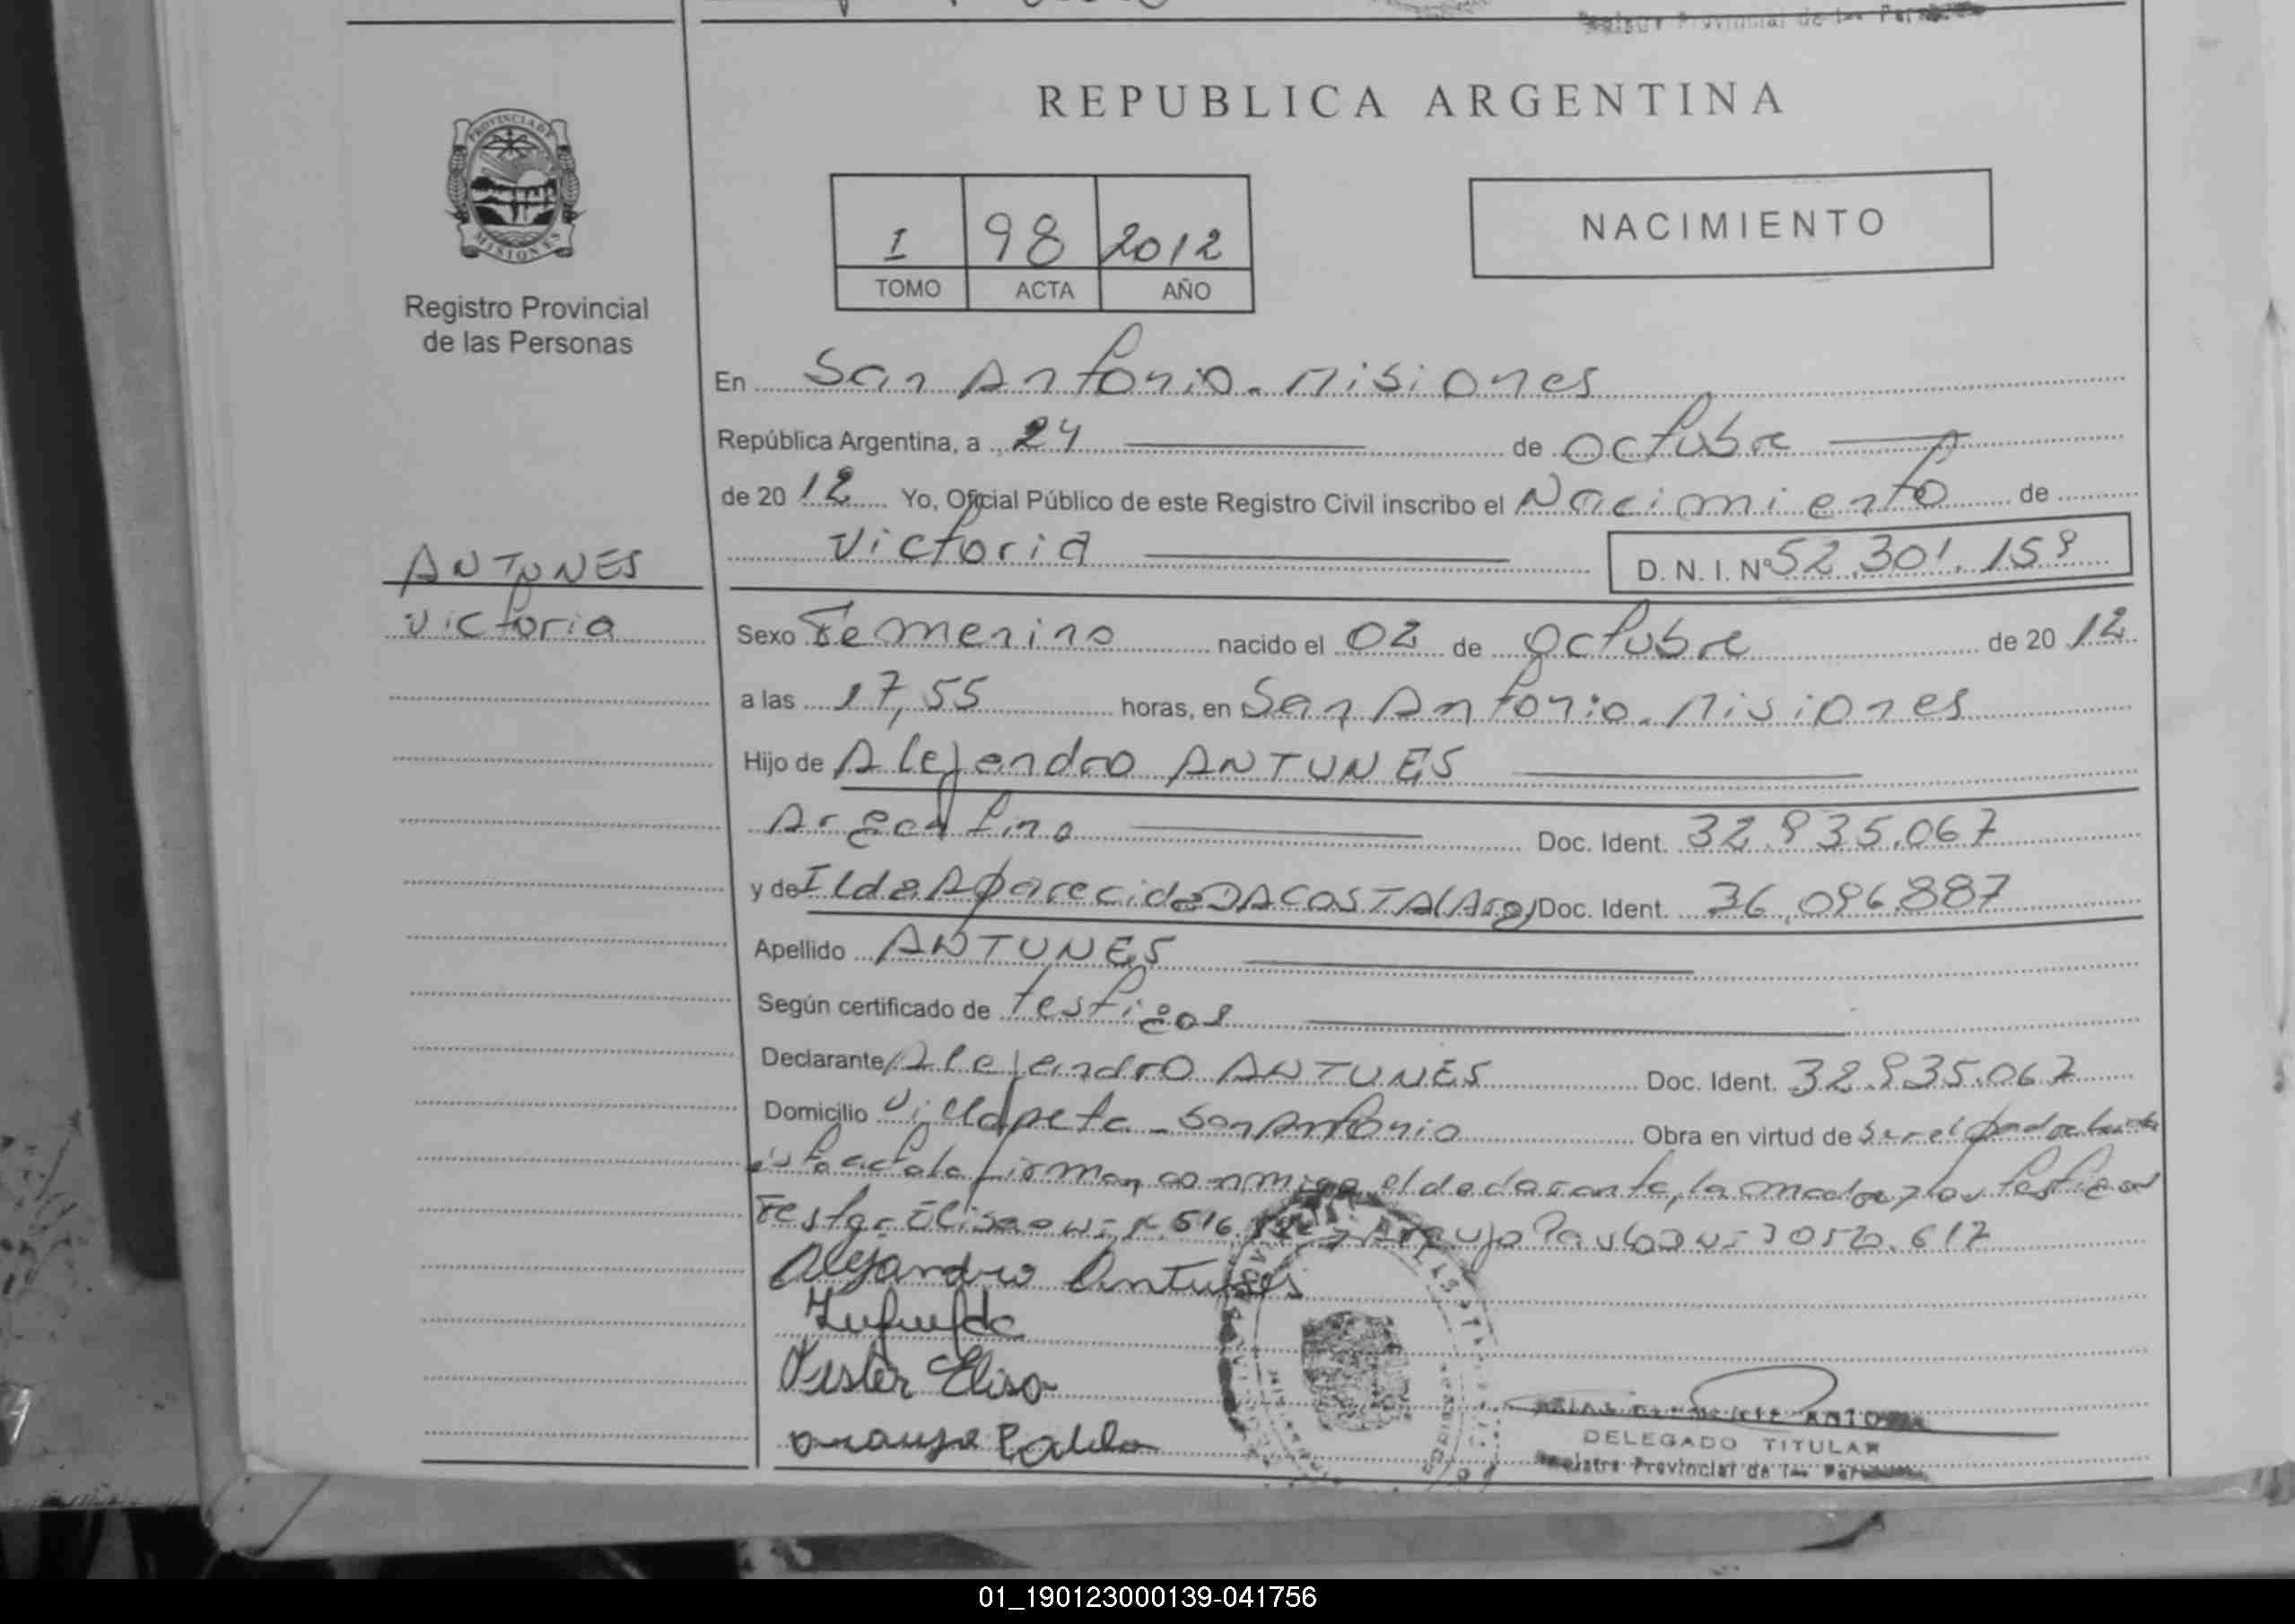 REPUBLICA ARGENTINA
PROVINCIA DE
MISIONES
Registro Provincial
de las Personas
I 98 2012
TOMO ACTA AÑO
NACIMIENTO
En San Antonio - Misiones
República Argentina, a 24 de octubre
de 2012 Yo, Oficial Público de este Registro Civil inscribo el Nacimiento de
Victoria
D. N. I. Nº 52.301.159
ANTUNES
Victoria
Sexo Femenino nacido el 02 de octubre de 2012
a las 17,55 horas, en San Antonio - Misiones
Hijo de Alejandro ANTUNES
Argentino Doc. Ident. 32.935.067
y de Ilda Aparecida DACOSTA (Arg) Doc. Ident. 36.096.887
Apellido ANTUNES
Según certificado de testigos
Declarante Alejandro ANTUNES Doc. Ident. 32.935.067
Domicilio Villa peta - San Antonio Obra en virtud de ser el padre
esta acta la firman conmigo el declarante, la madre y los testigos
Elisa Araujo Pablo
Alejandro Antunes
Elisa
Araujo Pablo
DELEGADO TITULAR
Registro Provincial de las Personas
01_190123000139-041756